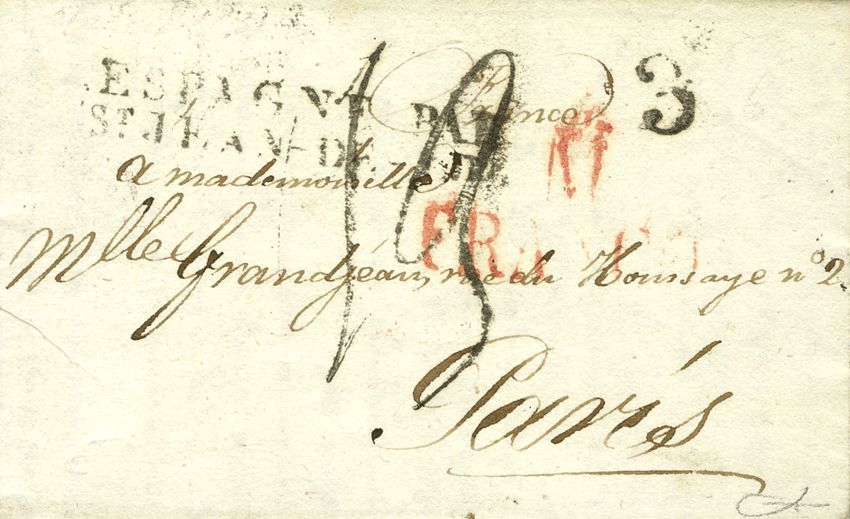 ESPAGNE PAR
ST JEAN-DE-LUZ
France
3
19
a mademoiselle
FRANCO
Mlle Grandjéan, rue du Houssaye no 2.
París